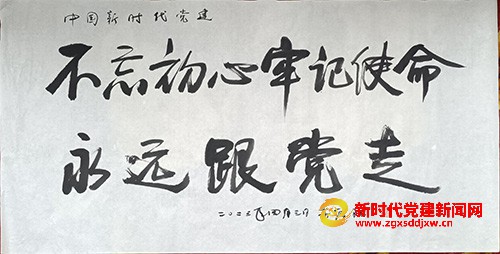 中国新时代党建
不忘初心牢记使命
永远跟党走
二〇二三年四月三日
新时代党建新闻网
www.zgxsddjxw.cn